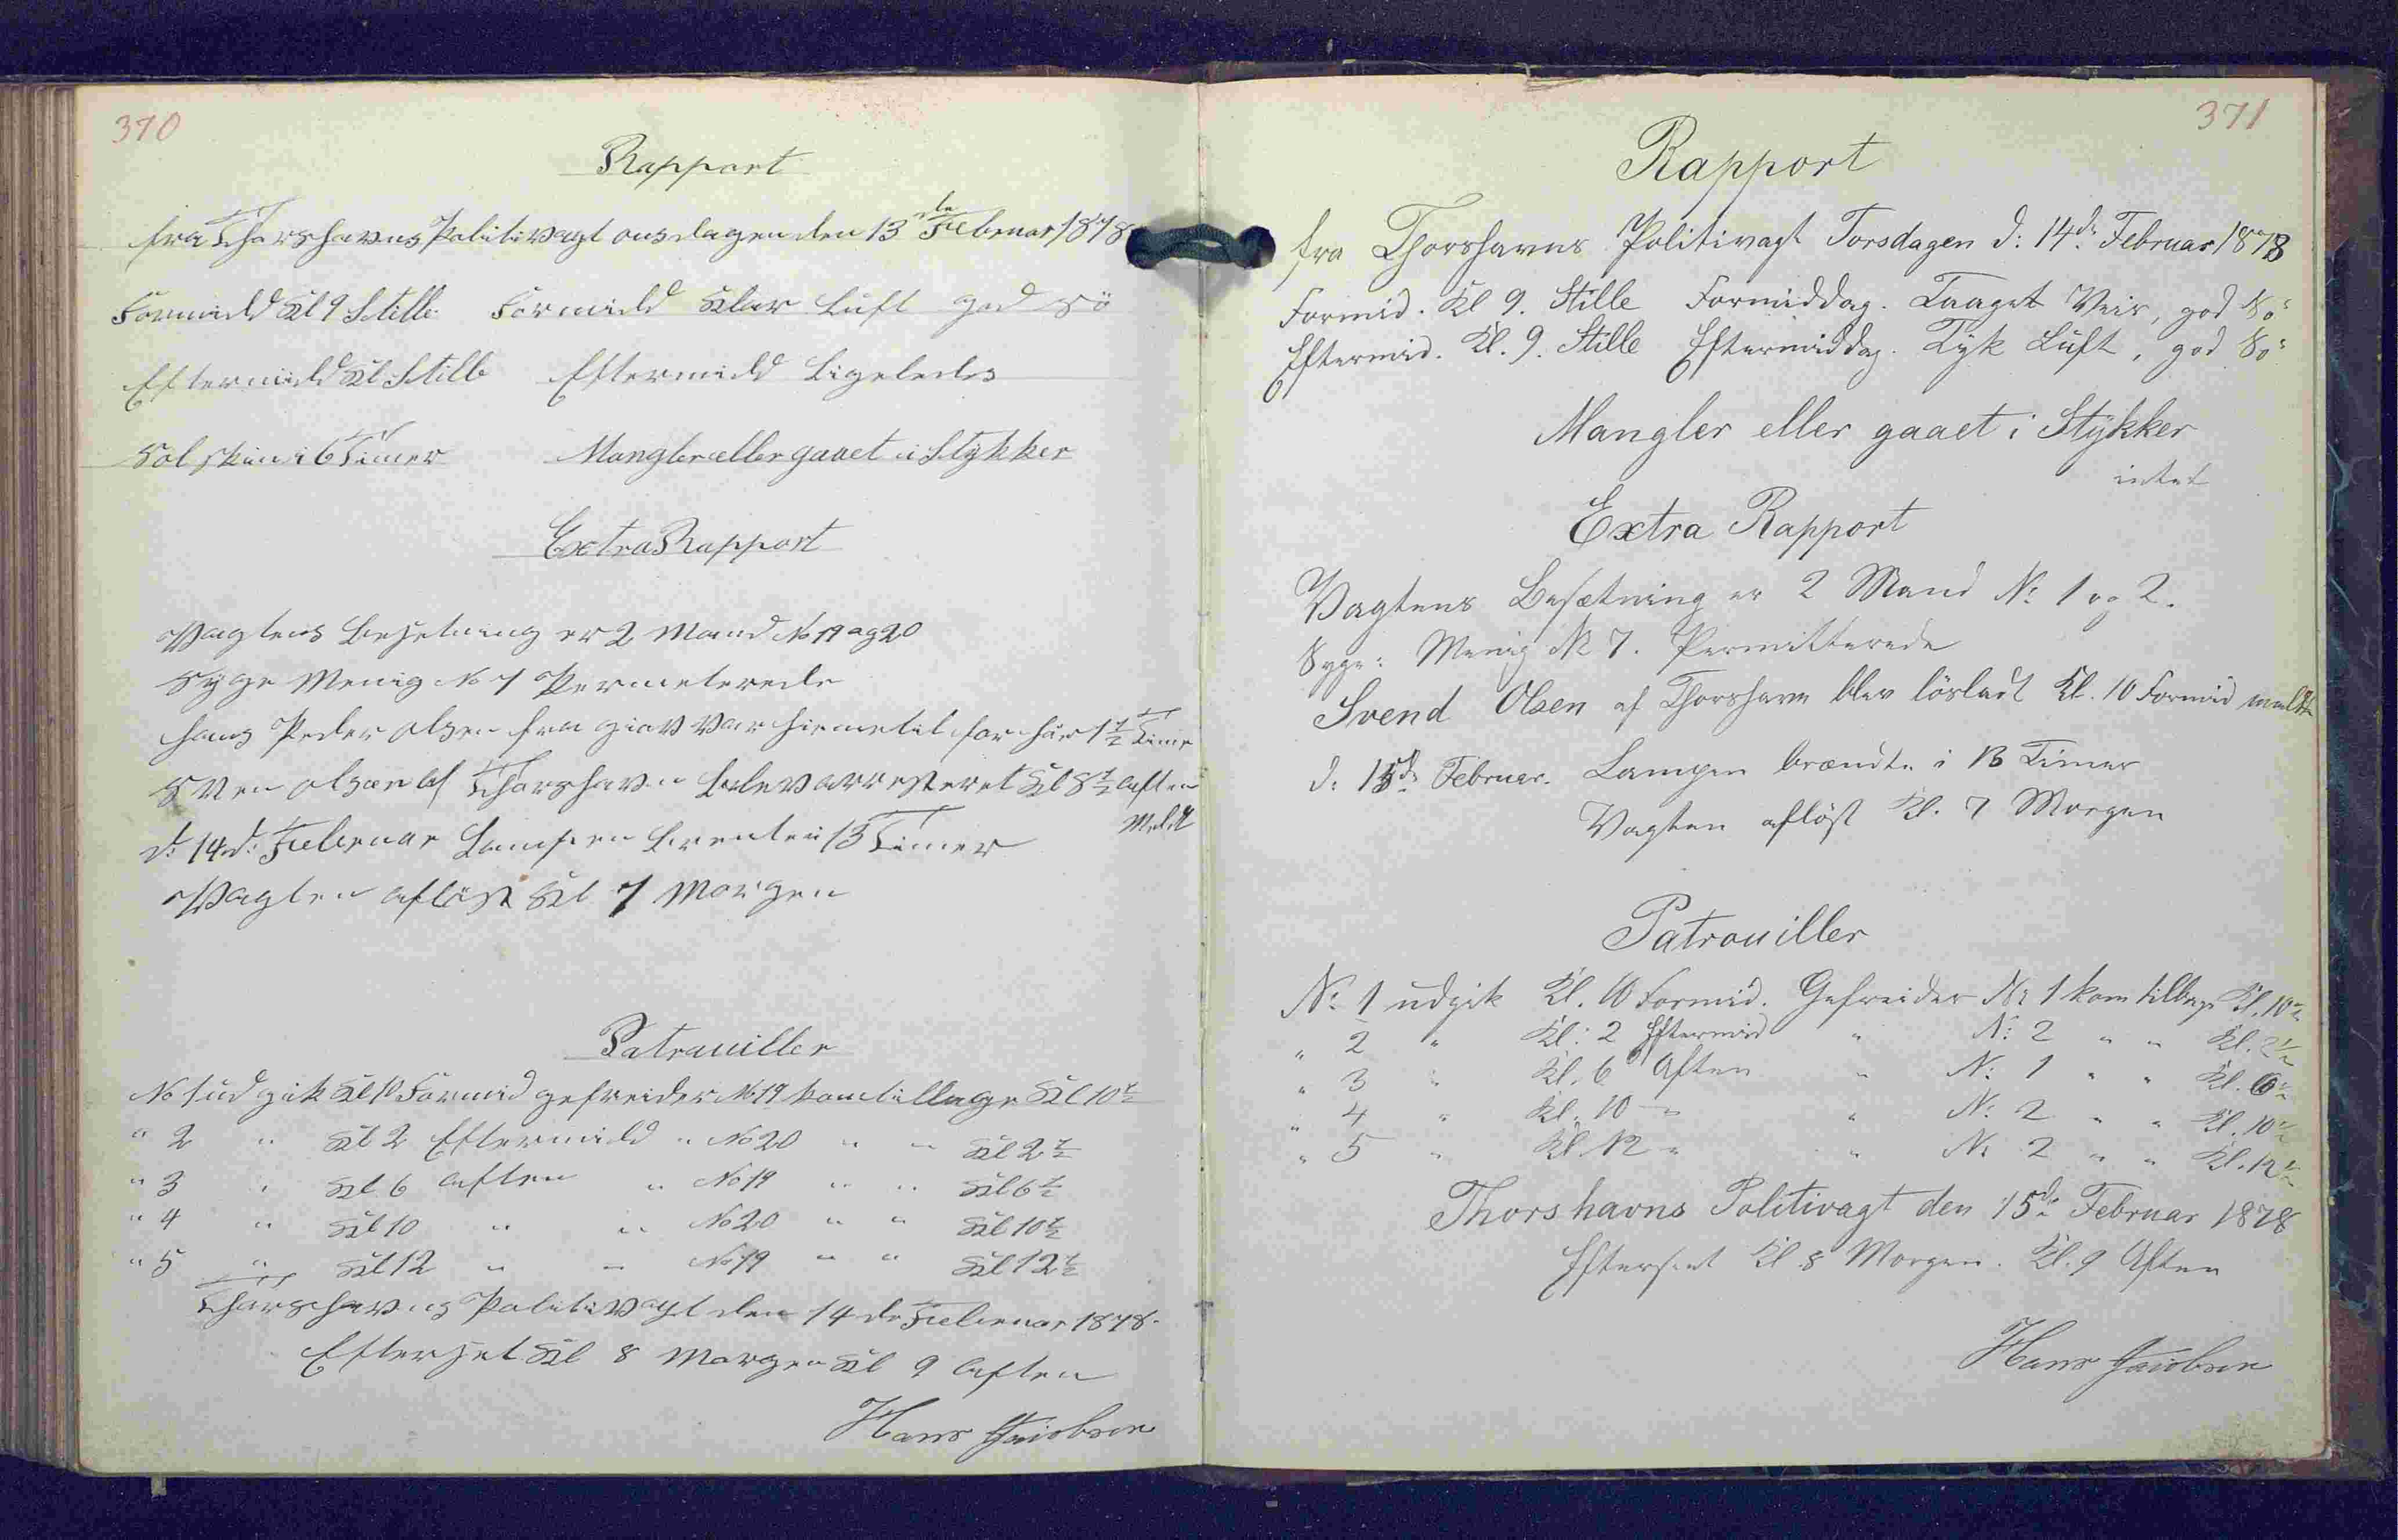 370
Rapport
fra Thorshavns Politivagt onsdagen den 13de Februar 1878
Formidd Kl 9 Stille Formidd Klar Luft god Sö
Eftermidd Kl Stille Eftermidd Ligeledes
Solskin i 6 Timer Mangler eller gaaet i Stykker
Extra Rapport
Vagtens Besetning er 2 Mand No 19 og 20
Syge Menig No 7 Permeterede
Hans Peder Olsen fra giov var hiemetil forhör 1 1/2 Time
Sven Olsen af Thorshavn blev arresteret Kl 8 1/2 aften
Meldt
d: 14d: Februar Lampen brente i 13 Timer
Vagten aflöst Kl 7 Morgen
Patrouiller
No 1 udgik Kl 10 Formid gefreider No 19 kom tilbage Kl 10 1/2
" 2 " Kl 2 Eftermidd " No 20 " " Kl 2 1/2
" 3 " Kl 6 aften " No 19 " " Kl 6 1/2
" 4 " Kl 10 " " No 20 " " Kl 10 1/2
" 5 " Kl 12 " " No 19 " " Kl 12 1/2
Thorshavns Politivagt den 14de Februar 1878.
Efterset Kl 8 Morgen Kl 9 aften
Hans Jacobsen
371
Rapport
fra Thorshavns Politivagt Torsdagen d: 14de Februar 1878
Formid. Kl 9. Stille Formiddag. Taaget Veir, god Sö
Eftermid. Kl. 9. Stille Eftermiddag. Tyk Luft, god Sö
Mangler eller gaaet i Stykker
intet
Extra Rapport
Vagtens Besætning er 2 Mand No 1 og 2.
Syge: Menig No 7. Permitterede
Svend Olsen af Thorshavn blev lösladt Kl. 10 Formid meldt
d: 15de Februar. Lampen brændte i 13 Timer
Vagten aflöst Kl. 7 Morgen
Patrouiller
No 1 udgik Kl. 10 Formid. Gefreider No 1 kom tilbage Kl. 10 1/2
" 2 " Kl: 2 Eftermid " No 2 " " Kl. 2 1/2
" 3 " Kl. 6 Aften " No 1 " " Kl. 6 1/2
" 4 " Kl. 10 " " No 2 " " Kl. 10 1/2
" 5 " Kl. 12 " " No 2 " " Kl. 12 1/2
Thorshavns Politivagt den 15de Februar 1878
Efterset Kl. 8 Morgen. Kl. 9 Aften
Hans Jacobsen